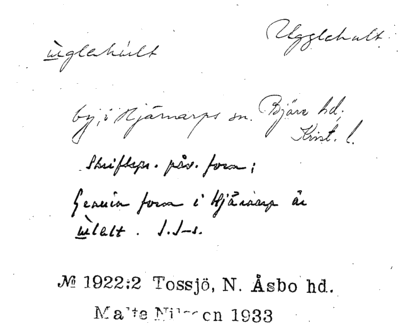 ùglahúlt Ugglehult
by, i Hjärnarps sn. Bjäre hd.
Krist. l.
Skriftspr. påv. form;
Genuin form i Hjärnarp är
ùlalt. S.I-s.
№ 1922:2 Tossjö, N. Åsbo hd.
Malte Nilsson 1933